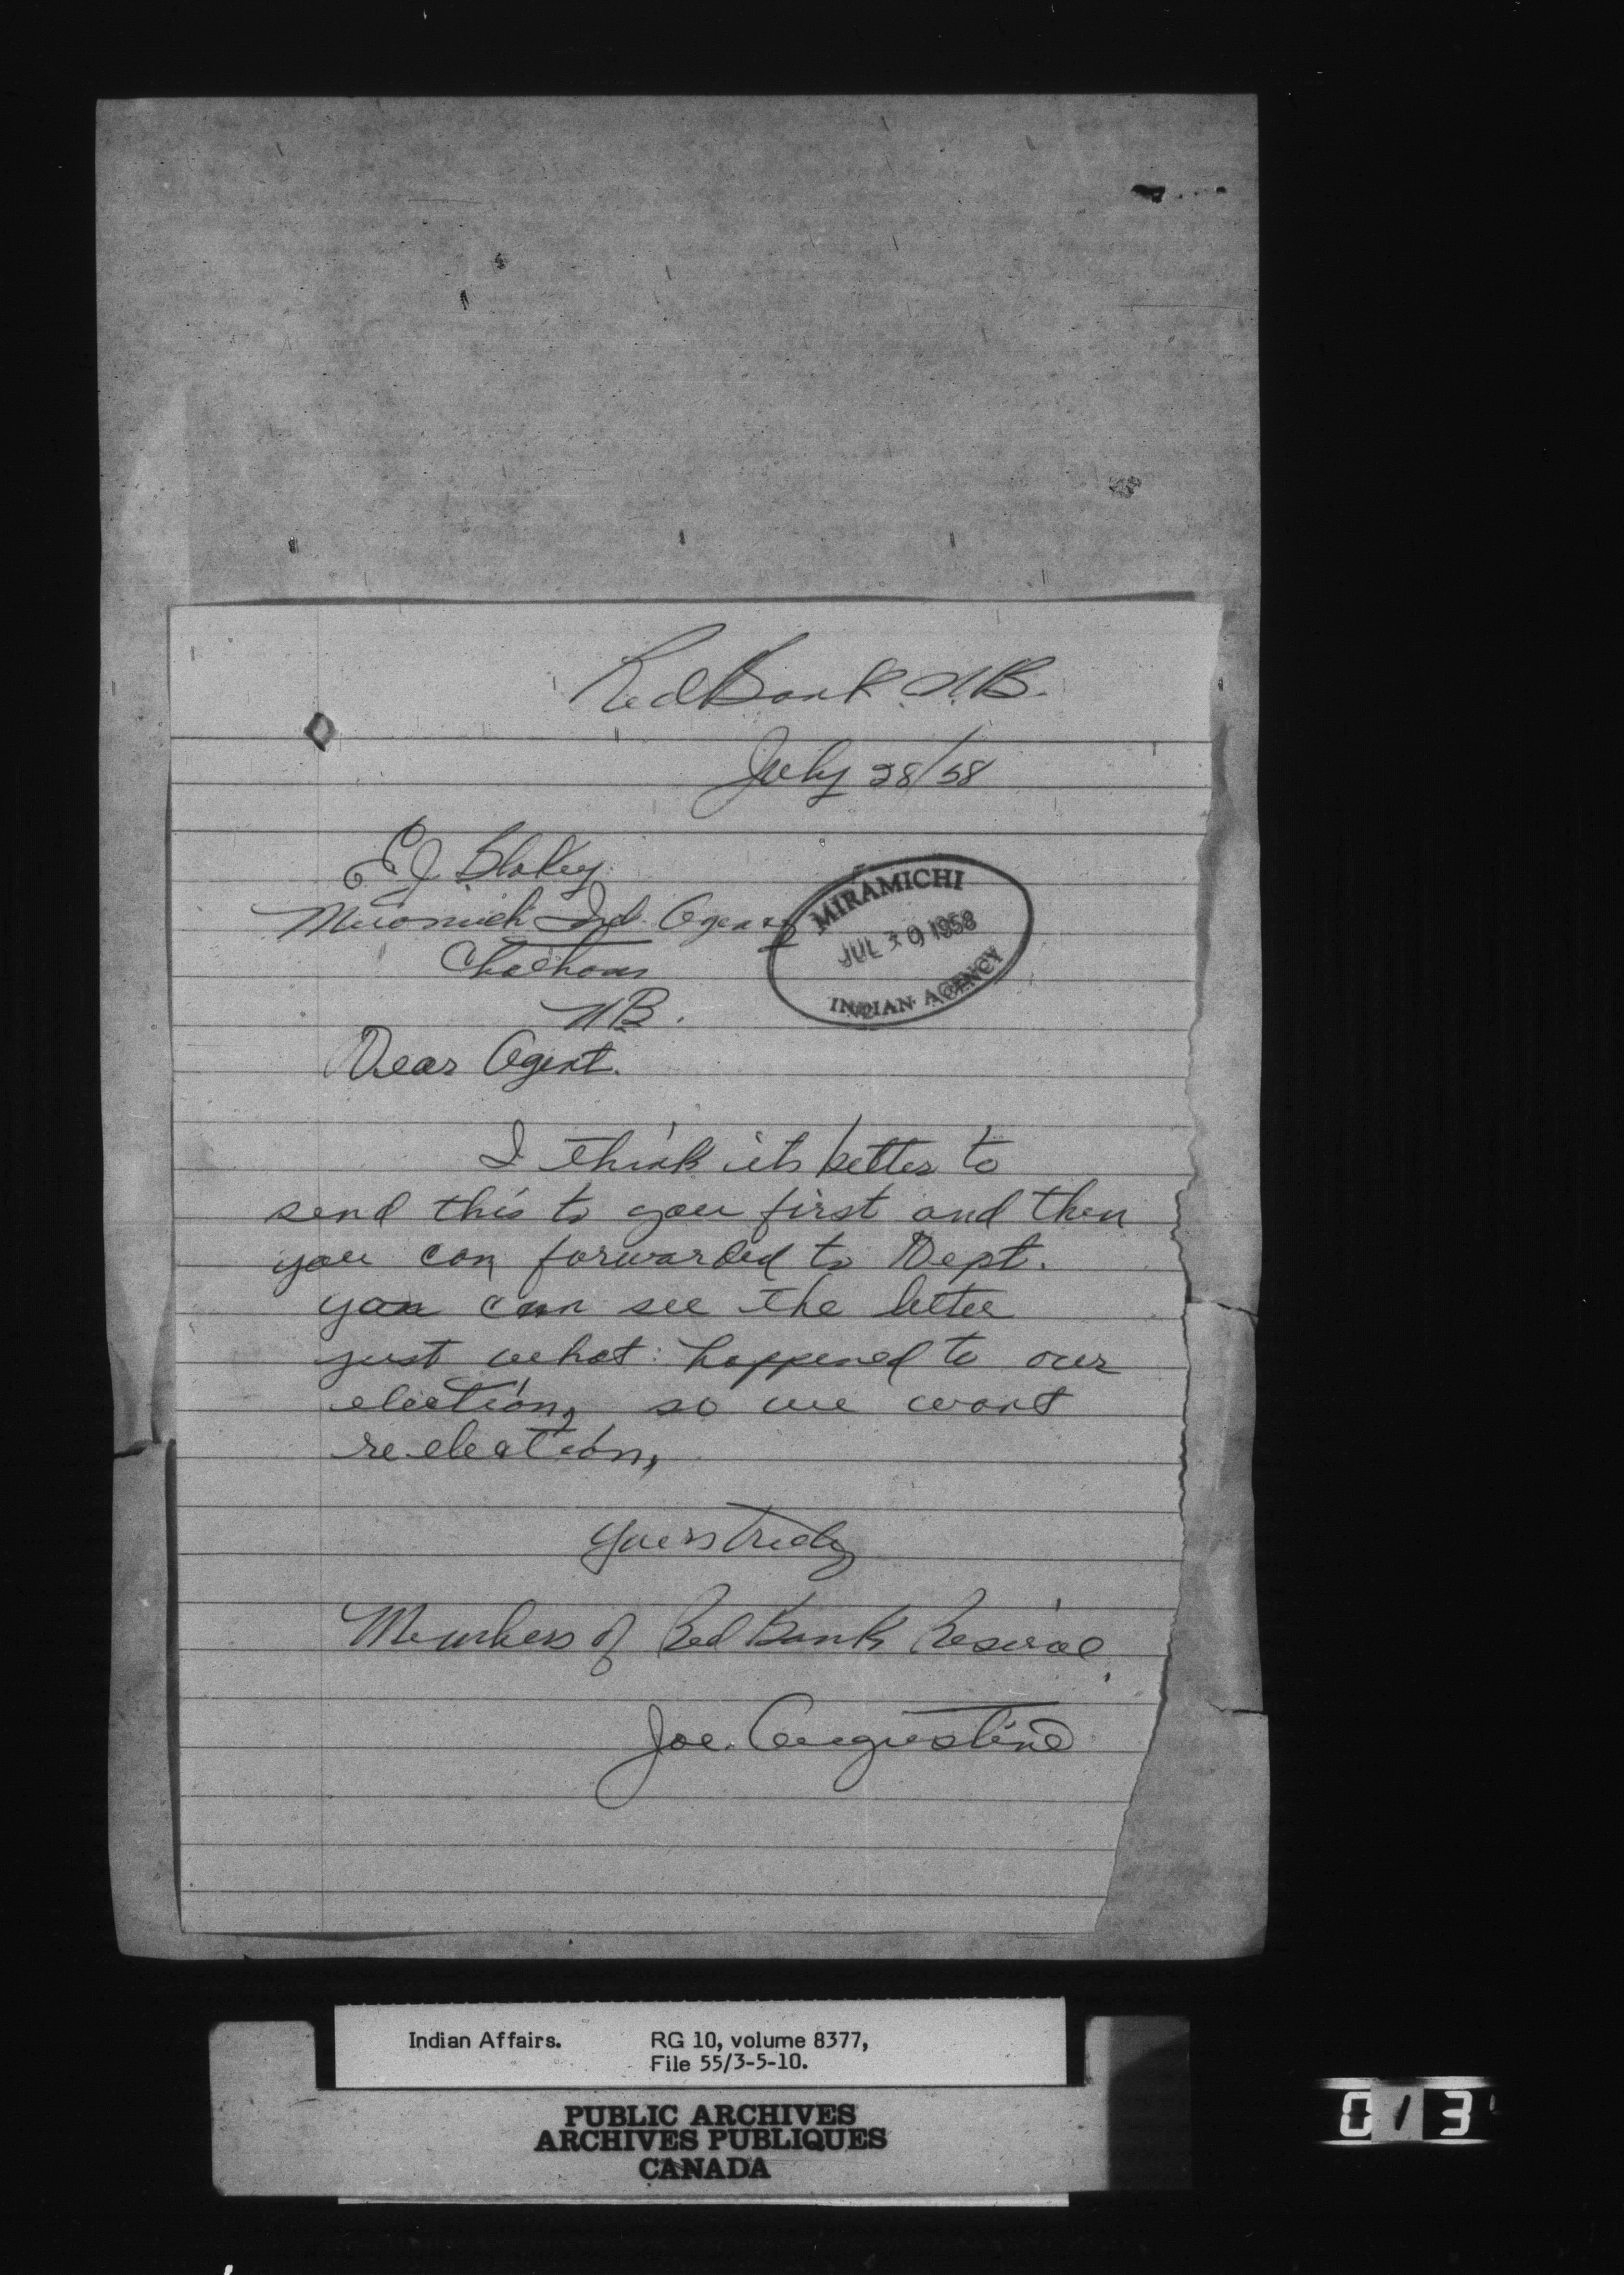 Red Bank N.B.
July 28/58
E J Blakey
Miramichi Ind. Agency
Chatham
N.B.
MIRAMICHI
JUL 30 1958
INDIAN AGENCY
Dear Agent.
I think its better to
send this to you first and then
you can forwarded to Dept.
you can see the letter
just what happened to our
election, so we want
re-election,
Yours truly
Members of Red Bank Reserve
Joe. Augustine
Indian Affairs. RG 10, volume 8377,
File 55/3-5-10.
PUBLIC ARCHIVES
ARCHIVES PUBLIQUES
CANADA
013